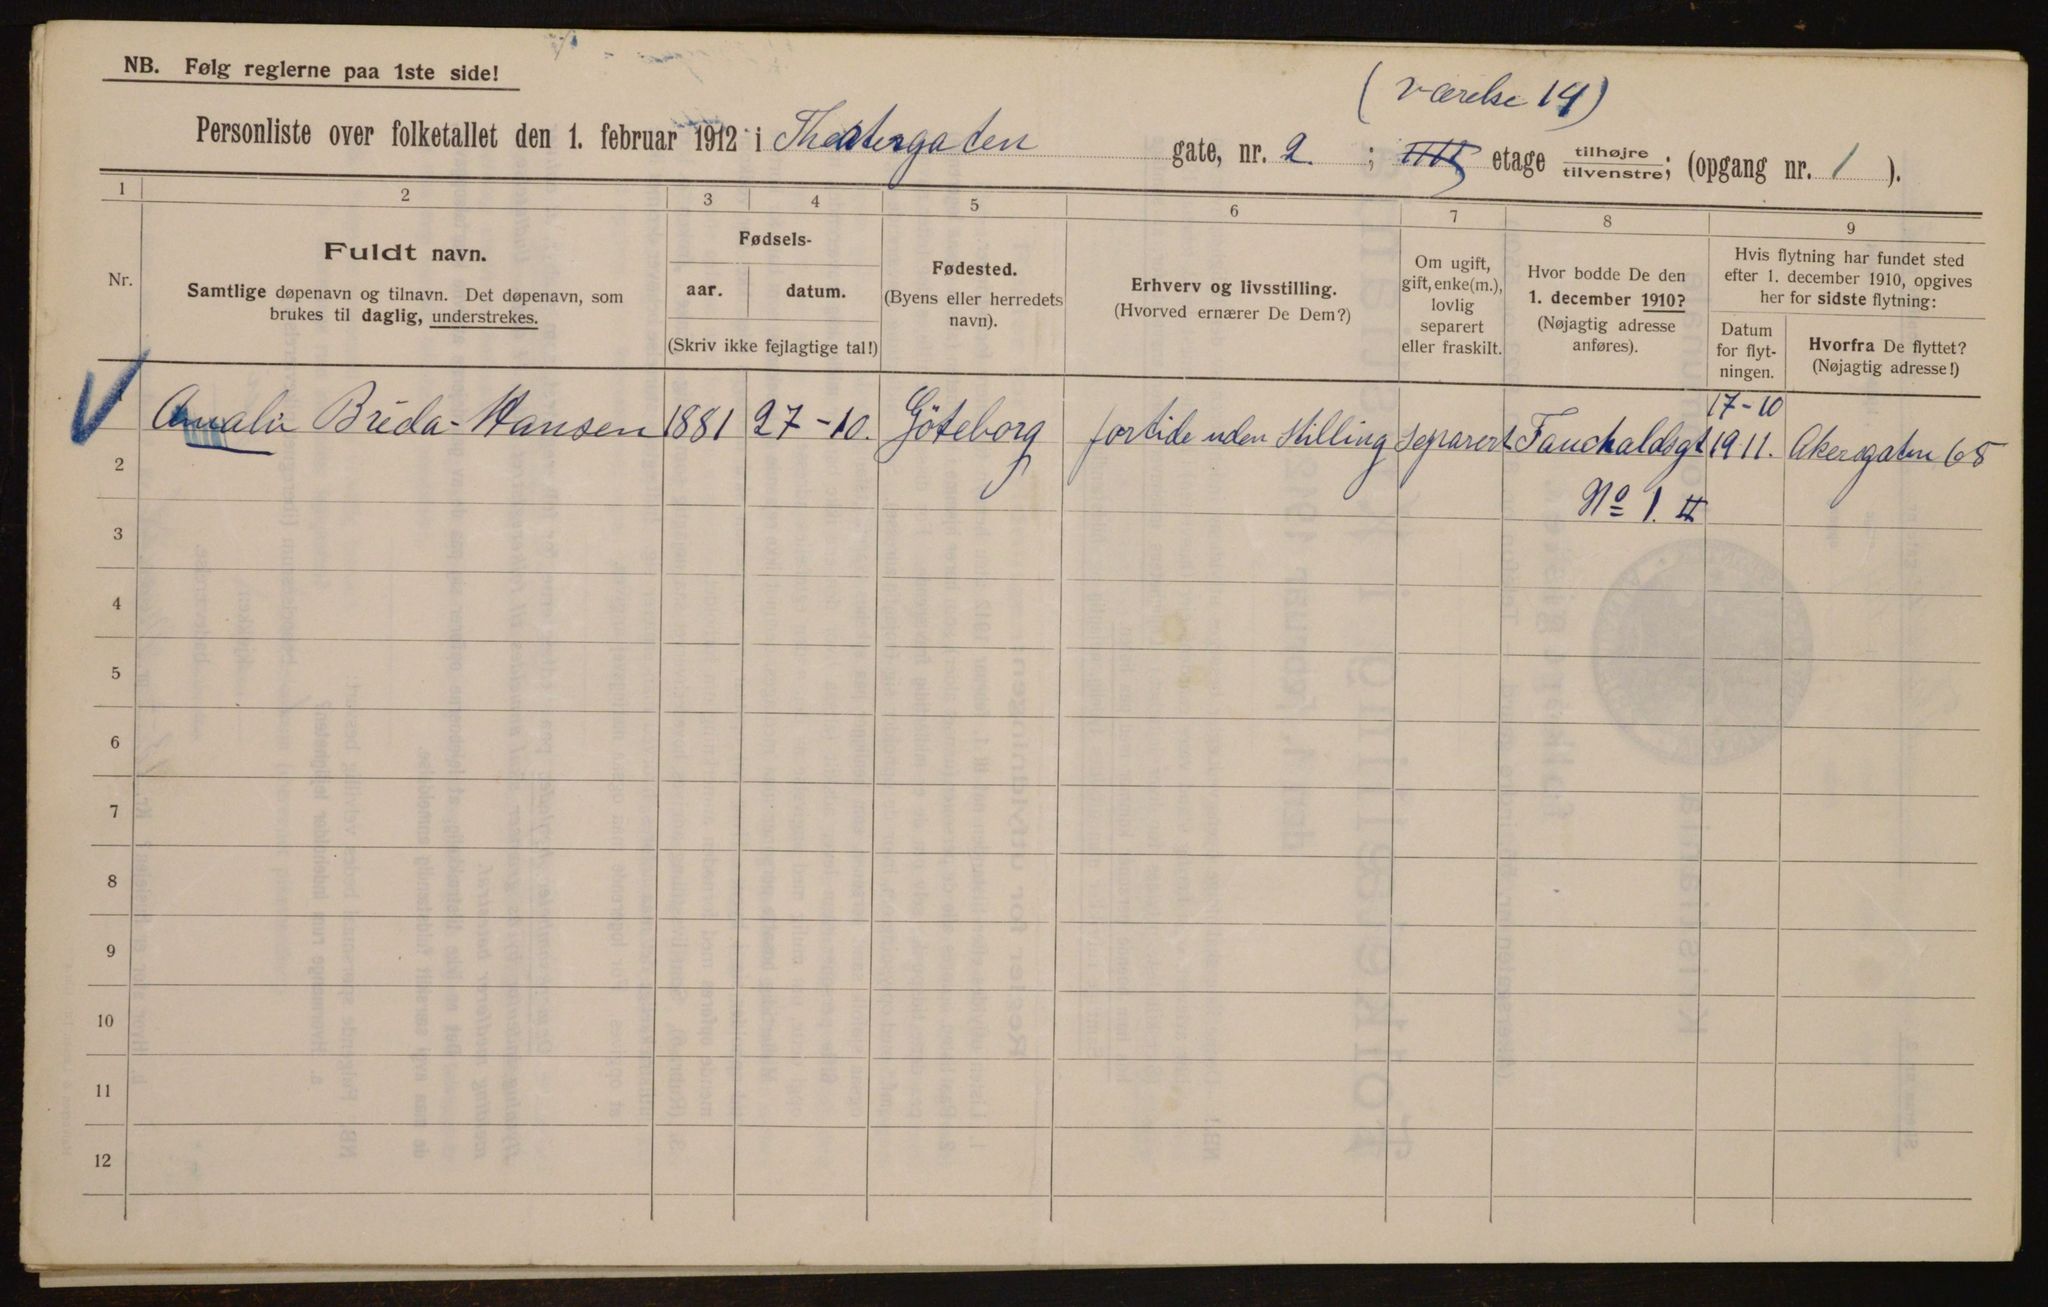 NB. Følg reglerne paa 1ste side!
(værelse 14)
Personliste over folketallet den 1. februar 1912 i Theatergaten gate, nr. 2. ; etage tilhøjre tilvenstre; (opgang nr. 1 ).
1 2 3 4 5 6 7 8 9
Nr.
Fuldt navn.
Samtlige døpenavn og tilnavn. Det døpenavn, som
brukes til daglig, understrekes.
Fødsels-
aar. datum.
(Skriv ikke fejlagtige tal!)
Fødested.
(Byens eller herredets
navn).
Erhverv og livsstilling.
(Hvorved ernærer De Dem?)
Om ugift,
gift, enke(m.),
lovlig
separert
eller fraskilt.
Hvor bodde De den
1. december 1910?
(Nøjagtig adresse
anføres).
Hvis flytning har fundet sted
efter 1. december 1910, opgives
her for sidste flytning:
Datum
for flyt-
ningen.
Hvorfra De flyttet?
(Nøjagtig adresse!)
17-10
Amalie Breda-Hansen 1881 27-10. Göteborg fortide uden Stilling separert Fauchaldsgt 1911. Akersgaten 68
No 1. II
2
3
4
5
6
7
8
9
10
11
12